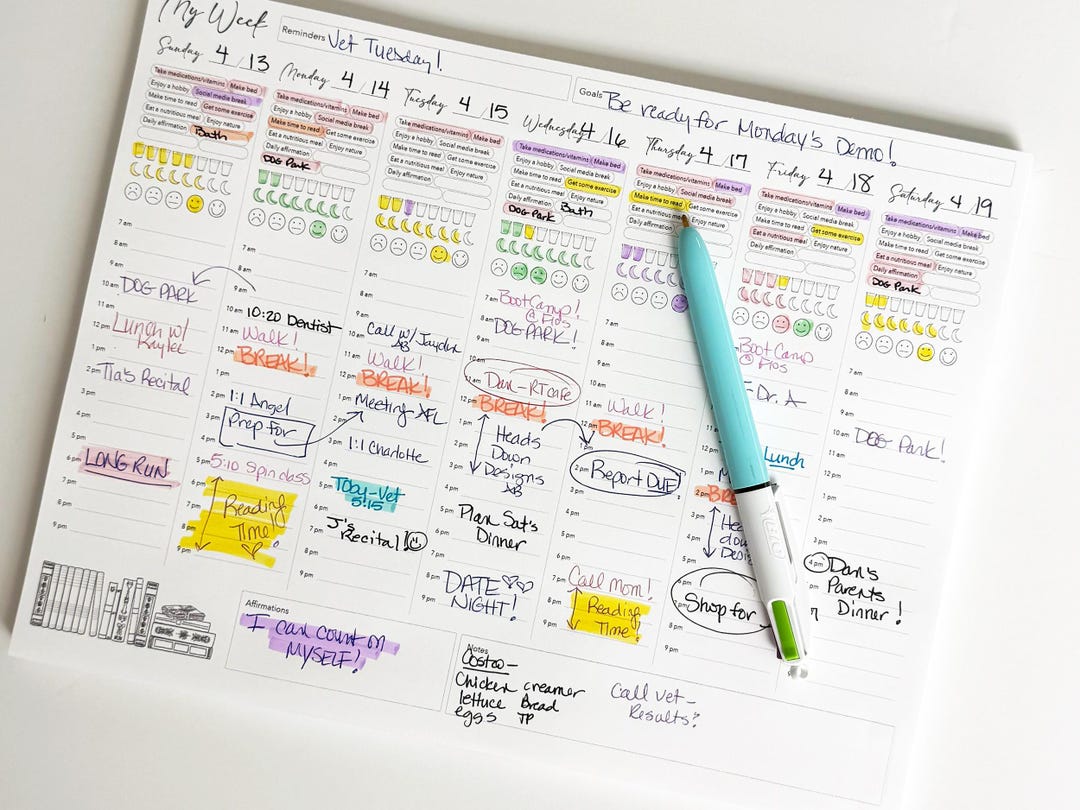 My Week
Reminders Vet Tuesday!
Goals Be ready for Monday's Demo!
Sunday 4/13
Take medications/vitamins Make bed
Enjoy a hobby Social media break
Make time to read Get some exercise
Eat a nutritious meal Enjoy nature
Daily affirmation Bath
7 am
8 am
9 am
10 am DOG PARK
11 am
12 pm Lunch w/
Kaylee
1 pm
2 pm Tia's Recital
3 pm
4 pm
5 pm
6 pm LONG RUN
7 pm
8 pm
9 pm
Monday 4/14
Take medications/vitamins Make bed
Enjoy a hobby Social media break
Make time to read Get some exercise
Eat a nutritious meal Enjoy nature
Daily affirmation
DOG PARK
7 am
8 am
9 am
10 am 10:20 Dentist
11 am Walk!
12 pm BREAK!
1 pm
2 pm 1:1 Angel
3 pm Prep for
4 pm
5 pm 5:10 Spin class
6 pm
7 pm Reading
8 pm Time!
9 pm
Tuesday 4/15
Take medications/vitamins Make bed
Enjoy a hobby Social media break
Make time to read Get some exercise
Eat a nutritious meal Enjoy nature
Daily affirmation
7 am
8 am
9 am
10 am Call w/ Jayden
AB
11 am Walk!
12 pm BREAK!
1 pm Meeting AFL
2 pm
3 pm 1:1 Charlotte
4 pm
5 pm Toby-Vet
5:15
6 pm
7 pm J's
Recital!
8 pm
9 pm
Wednesday 4/16
Take medications/vitamins Make bed
Enjoy a hobby Social media break
Make time to read Get some exercise
Eat a nutritious meal Enjoy nature
Daily affirmation Bath
DOG PARK
7 am Boot Camp!
@ Flos
8 am DOG PARK!
9 am
10 am
11 am Dan-RT cafe
12 pm BREAK!
1 pm Heads
2 pm Down
3 pm Designs
AB
4 pm
5 pm Plan Sat's
6 pm Dinner
7 pm
8 pm DATE
9 pm NIGHT!
Thursday 4/17
Take medications/vitamins Make bed
Enjoy a hobby Social media break
Make time to read Get some exercise
Eat a nutritious meal Enjoy nature
Daily affirmation
7 am
8 am
9 am
10 am
11 am Walk!
12 pm BREAK!
1 pm
2 pm Report DUE!
3 pm
4 pm
5 pm
6 pm
7 pm Call Mom!
8 pm Reading
9 pm Time
Friday 4/18
Take medications/vitamins Make bed
Enjoy a hobby Social media break
Make time to read Get some exercise
Eat a nutritious meal Enjoy nature
Daily affirmation
Boot Camp
@ Flos
Dr. A
Lunch
1 pm
2 pm
3 pm
4 pm
5 pm
6 pm
Shop for
8 pm
9 pm
Saturday 4/19
Take medications/vitamins Make bed
Enjoy a hobby Social media break
Make time to read Get some exercise
Eat a nutritious meal Enjoy nature
Daily affirmation
DOG PARK
7 am
8 am
9 am
10 am DOG PARK!
4 pm Dan's
Parents
Dinner!
Affirmations
I can count on
MYSELF!
Notes
Costco-
Chicken creamer
lettuce Bread
eggs TP
Call vet-
Results?